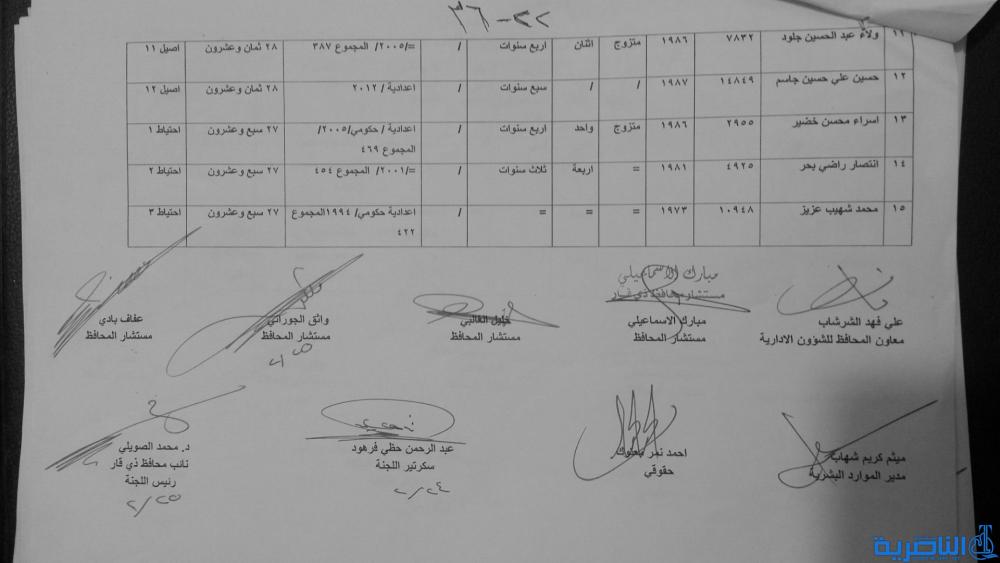 ٢٢-٣٦
١١ ولاء عبد الحسين جلود ٧٨٣٢ ١٩٨٦ متزوج اثنان اربع سنوات / =/٢٠٠٥/ المجموع ٣٨٧ ٢٨ ثمان وعشرون اصيل ١١
١٢ حسين علي حسين جاسم ١٤٨٤٩ ١٩٨٧ / / سبع سنوات / اعدادية / ٢٠١٢ ٢٨ ثمان وعشرون اصيل ١٢
١٣ اسراء محسن خضير ٢٩٥٥ ١٩٨٦ متزوج واحد اربع سنوات / اعدادية / حكومي/٢٠٠٥/ ٢٧ سبع وعشرون احتياط ١
المجموع ٤٦٩
١٤ انتصار راضي بحر ٤٩٢٥ ١٩٨١ = اربعة ثلاث سنوات / =/٢٠٠١/ المجموع ٤٥٤ ٢٧ سبع وعشرون احتياط ٢
١٥ محمد شهيب عزيز ١٠٩٤٨ ١٩٧٣ = = = / اعدادية حكومي/ ١٩٩٤المجموع ٢٧ سبع وعشرون احتياط ٣
٤٢٢
مبارك الاسماعيلي
مستشار محافظ ذي قار
علي فهد الشرشاب مبارك الاسماعيلي خليل الغالبي واثق الجوراني عفاف بادي
معاون المحافظ للشؤون الادارية مستشار المحافظ مستشار المحافظ مستشار المحافظ مستشار المحافظ
٢/٢٥
ميثم كريم شهاب احمد نمر عبد الرحمن حظي فرهود د. محمد الصويلي
مدير الموارد البشرية حقوقي سكرتير اللجنة نائب محافظ ذي قار
رئيس اللجنة
٢/٢٤ ٢/٢٥
الناصرية